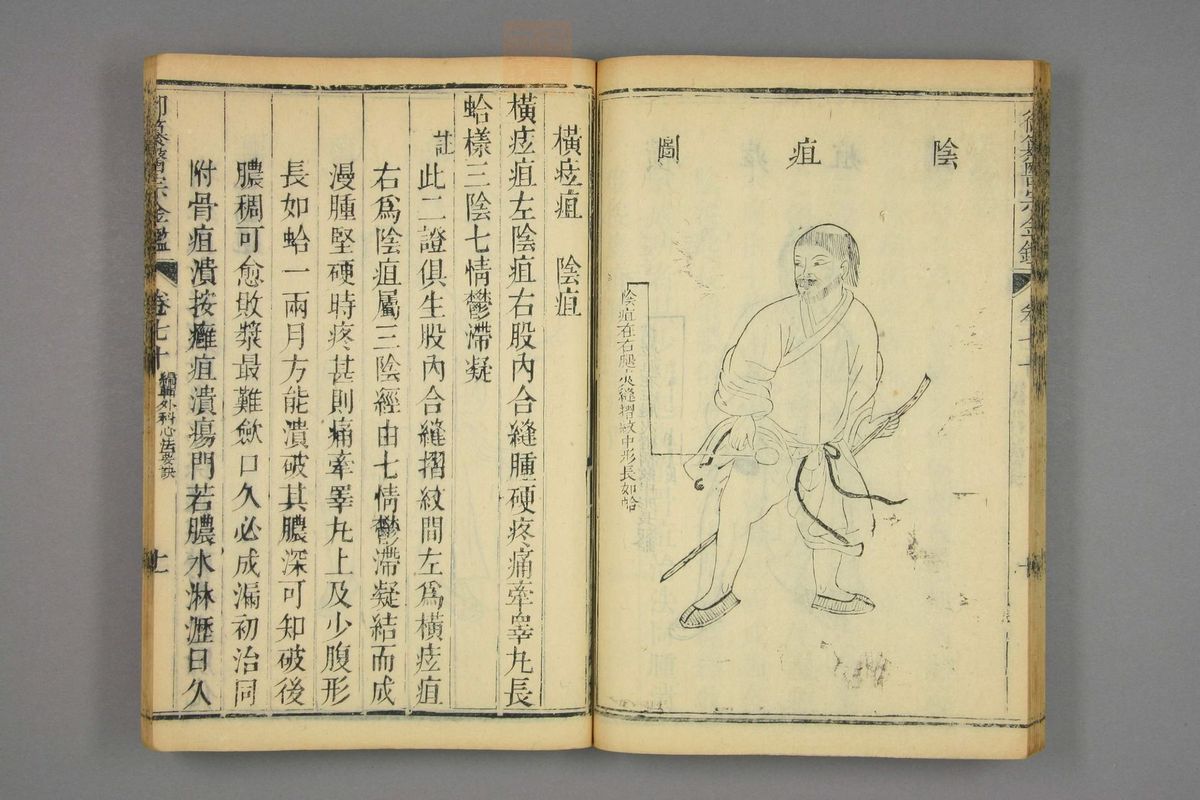 陰疽圖
陰疽在右腿夾縫摺紋中形長如蛤
橫痃疽　陰疽
橫痃疽左陰疽右股內合縫腫硬疼痛牽睪丸長
蛤樣三陰七情鬱滯凝
註
此二證俱生股內合縫摺紋間左爲橫痃疽
右爲陰疽屬三陰經由七情鬱滯凝結而成
漫腫堅硬時疼甚則痛牽睪丸上及少腹形
長如蛤一兩月方能潰破其膿深可知破後
膿稠可愈敗漿最難歛口久必成漏初治同
附骨疽潰按癰疽潰瘍門若膿水淋瀝日久
卷七十
編輯外科心法要訣
十一